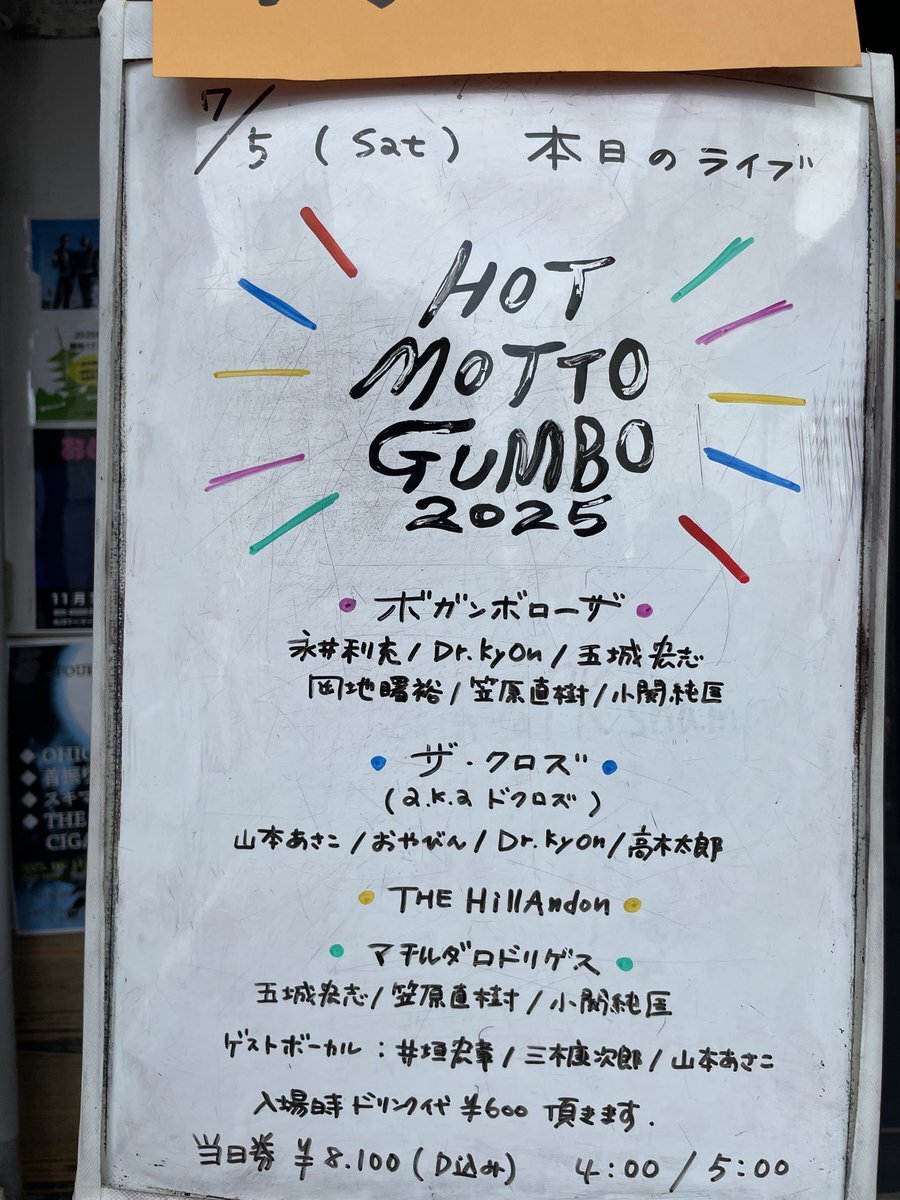 7/5 (Sat) 本日のライブ
HOT
MOTTO
GUMBO
2025
ボガンボローザ
永井利充/Dr.kyOn/五城宏志
岡地曙裕/笠原直樹/小関純匡
ザ・クロズ
(a.k.a ドクロズ)
山本あさこ/おやびん/Dr.kyOn/高木太郎
THE HillAndon
マチルダロドリゲス
五城宏志/笠原直樹/小関純匡
ゲストボーカル:井垣宏章/三木康次郎/山本あさこ
入場時ドリンク代¥600 頂きます.
当日券 ¥8.100(D込み) 4:00/5:00
11月
OHIO
首振り
スキマ
THE
CIGA